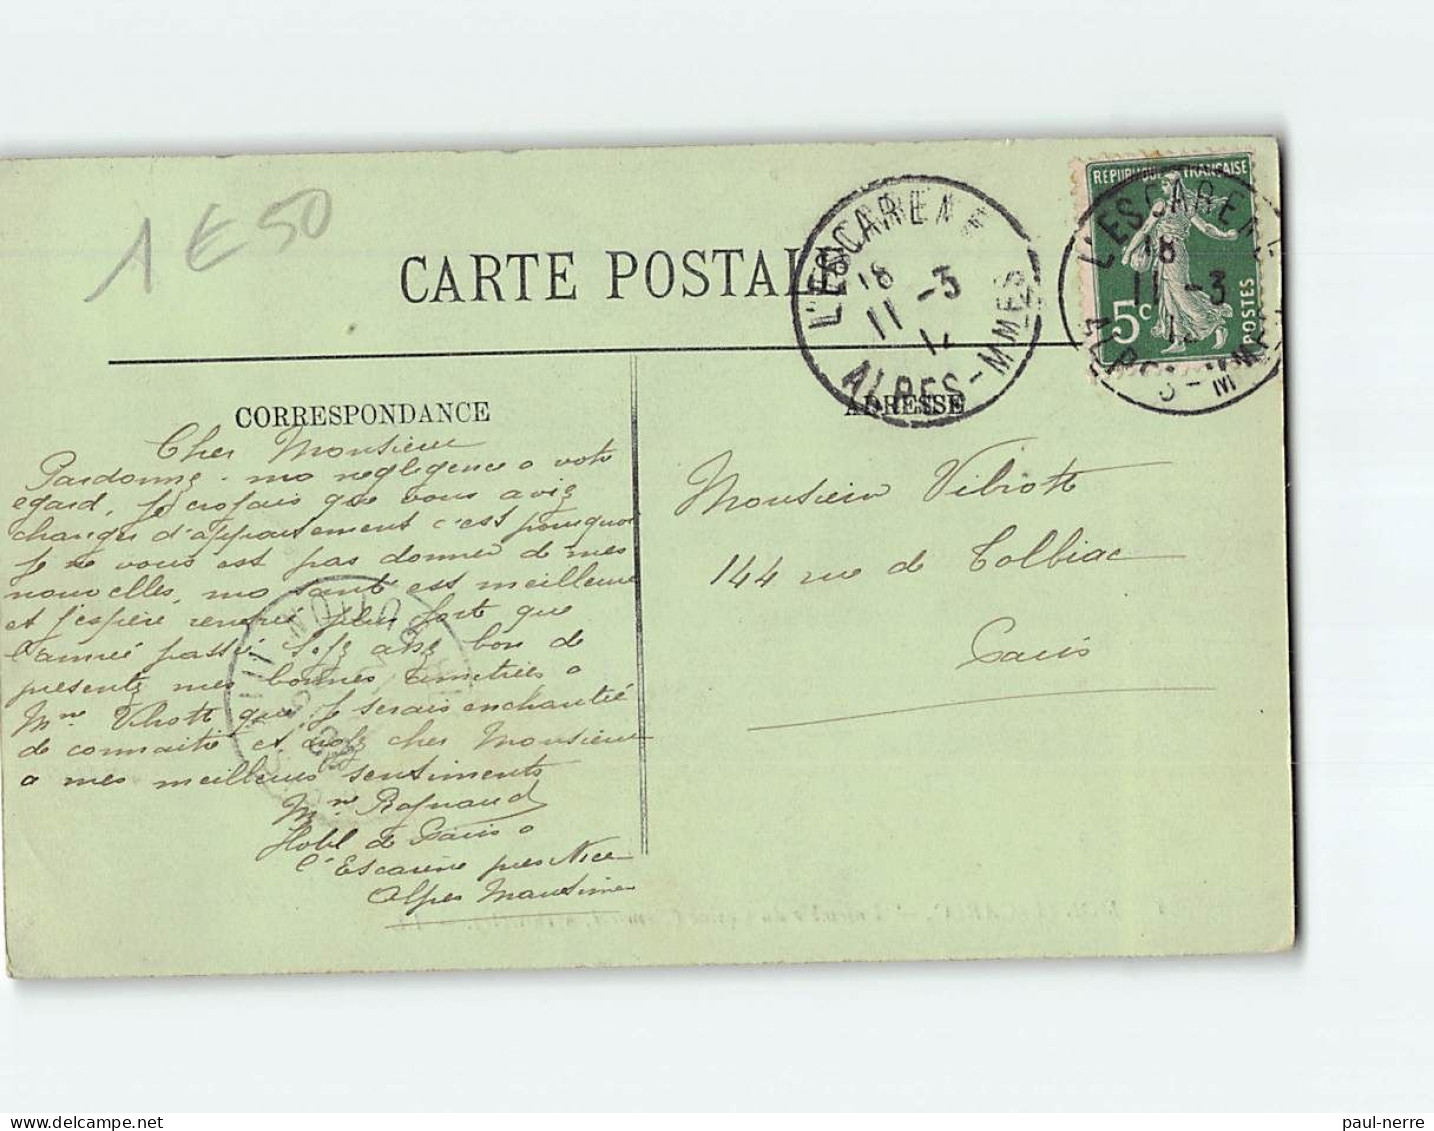 1 E 50
CARTE POSTALE
L'ESCARENE
18
11 -3
12
ALPES-MMES
RÉPUBLIQUE FRANÇAISE
5c
POSTES
L'ESCARENE
18
11 -3
12
ALPES-MMES
CORRESPONDANCE
ADRESSE
Cher Monsieur
Pardonnez ma negligence a votre
egard, je croyais que vous aviez
changer d'appartement c'est pourquoi
je ne vous est pas donner de mes
nouvelles, ma santé est meilleure
et j'espère rentrée plus fort que
l'année passé soyez assez bon de
presentez mes bonnes amitiées a
Mme Vibrott que je serais enchantié
de connaitre et cher Monsieur
a mes meilleurs sentiments
Mme Raynaud
Hotel de Paris a
l'Escarène près Nice
Alpes Maritimes
Monsieur Vibrott
144 rue de Tolbiac
Paris
paul-nerre